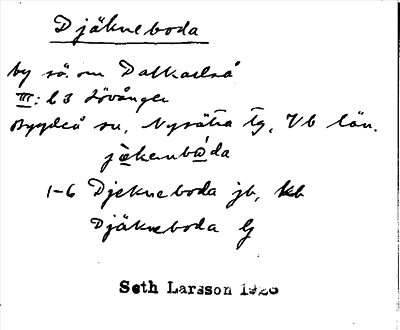 Djäkneboda
by sö. om Dalkarlså
III: l 3 Lövånger
Bygdeå sn, Nysätra tg, Vb län.
jäkenboda
1-6 Djekneboda jb, kb
Djäkneboda G
Seth Larsson